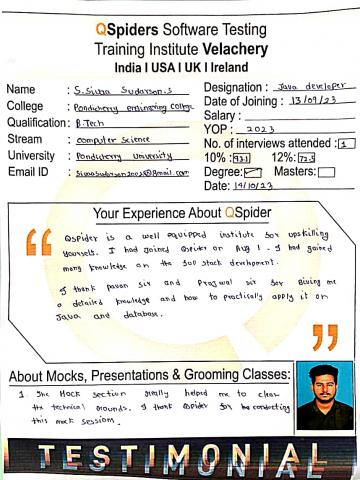 QSpiders Software Testing
Training Institute Velachery
India I USA I UK I Ireland
Name : S. Siva Sudarson.S
Designation : Java developer
College : Pondicherry engineering college
Date of Joining : 13/09/23
Salary :
Qualification : B.Tech
YOP : 2023
Stream : Computer Science
No. of interviews attended : 1
University : Pondicherry University
10% : 93.1 12% : 72.5
Email ID :
Degree: Masters:
Date: 14/10/23
Your Experience About QSpider
QSpider is a well equipped institute for upskilling
yourself. I had joined Qspider on Aug 1. I had gained
many knowledge on the full stack development.
I thank pavan sir and Prajwal sir for giving me
a detailed knowledge and how to practically apply it on
Java and database.
About Mocks, Presentations & Grooming Classes:
1 The Mock section really helped me to clear
the technical rounds. I thank Qspider for the conducting
this mock session.
TESTIMONIAL